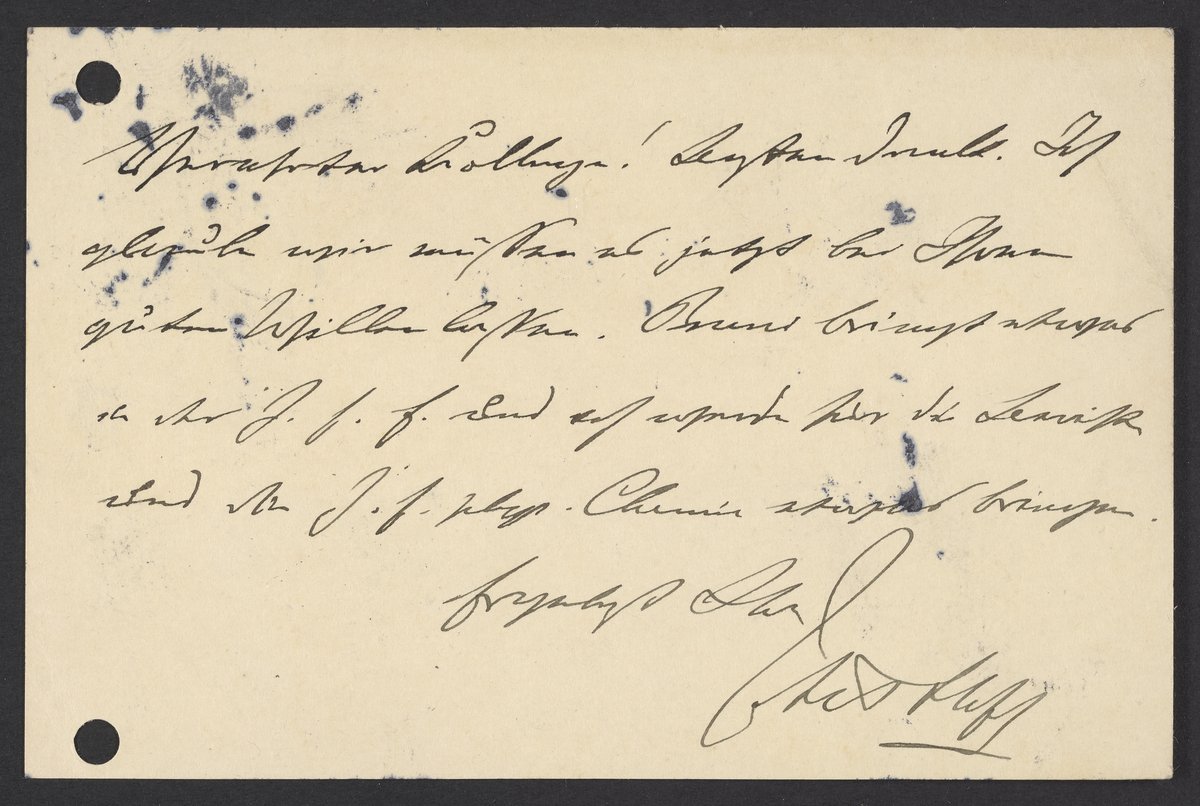 Verehrter Kollege! Besten Dank. Ich
glaube wir müssen es jetzt bei Ihrem
guten Willen lassen. Bruni bringt etwas
in der Z. f. und ich werde für die
und die Z. f. phys. Chemie etwas bringen.
Ihr